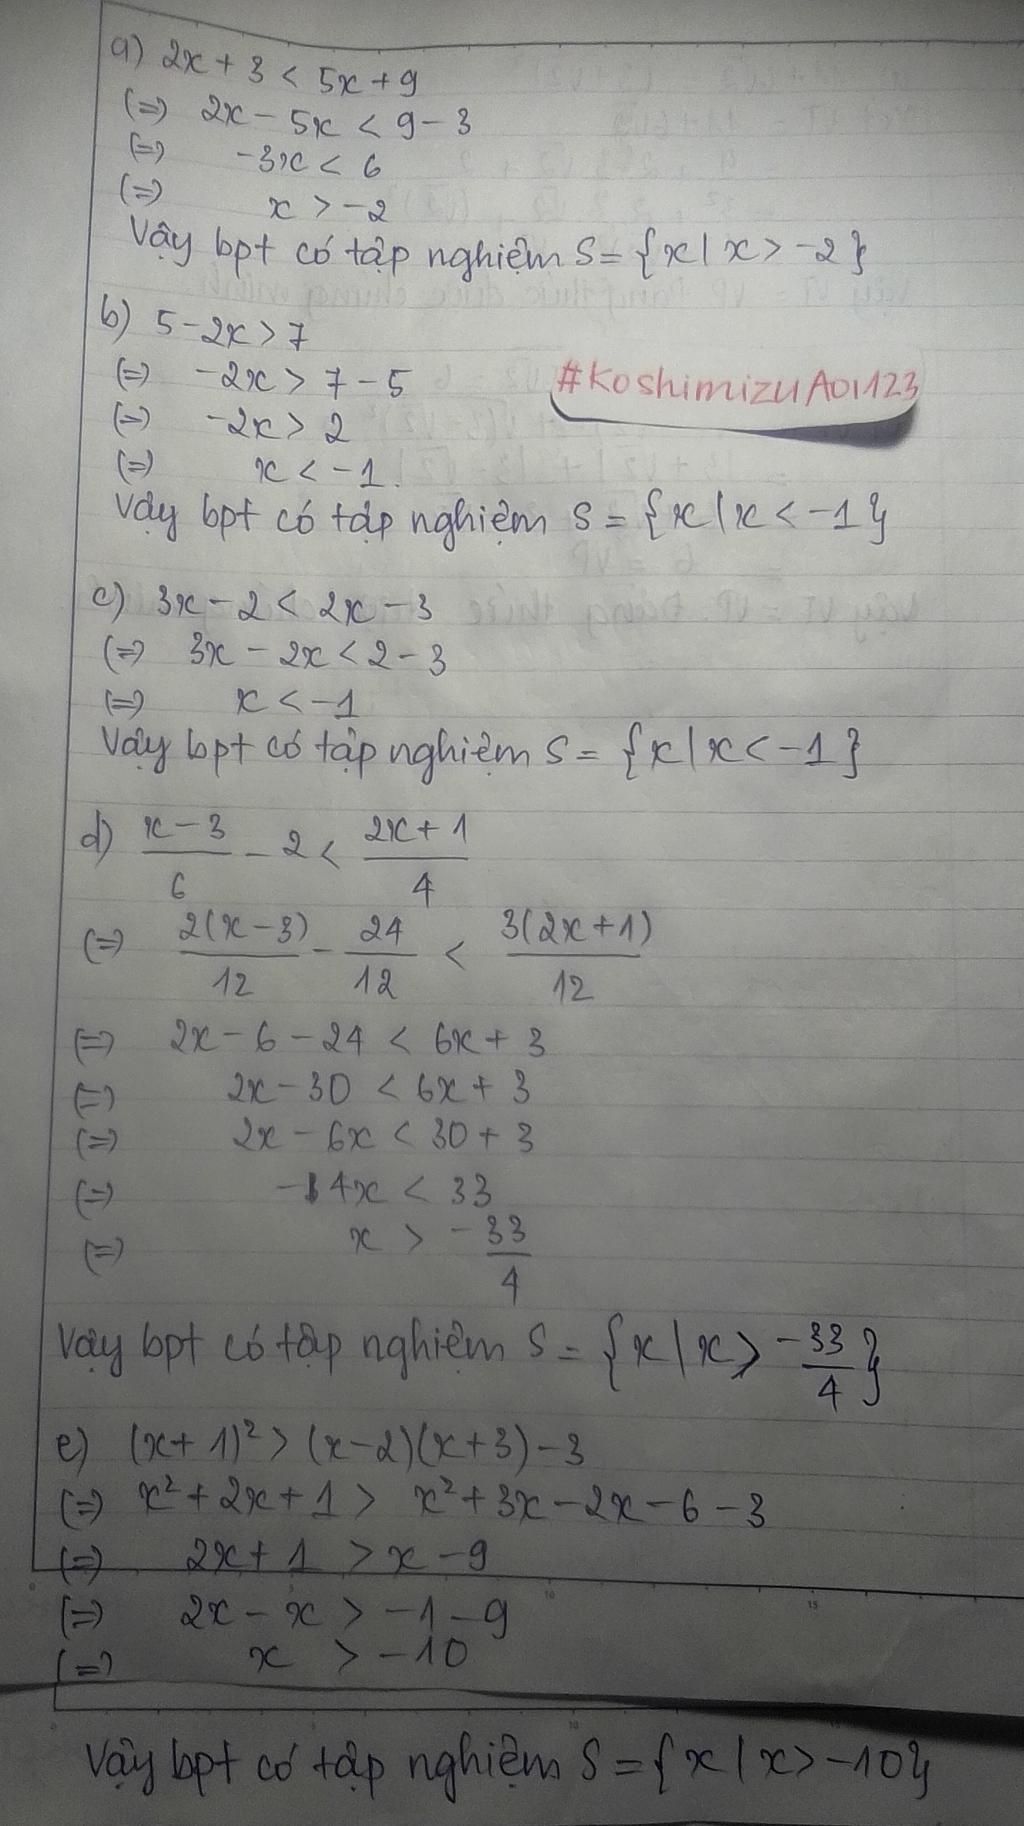 a) 2x + 3 < 5x + 9
(=) 2x - 5x < 9 - 3
(=) -3x < 6
(=) x > -2
Vậy bpt có tập nghiệm S = {x | x > -2}
b) 5 - 2x > 7
(=) -2x > 7 - 5
#KoshimizuAoi123
(=) -2x > 2
(=) x < -1.
Vậy bpt có tập nghiệm S = {x | x < -1}
c) 3x - 2 < 2x - 3
(=) 3x - 2x < 2 - 3
(=) x < -1
Vậy bpt có tập nghiệm S = {x | x < -1}
d) \frac{x - 3}{6} - 2 < \frac{2x + 1}{4}
(=) \frac{2(x - 3)}{12} - \frac{24}{12} < \frac{3(2x + 1)}{12}
(=) 2x - 6 - 24 < 6x + 3
(=) 2x - 30 < 6x + 3
(=) 2x - 6x < 30 + 3
(=) -4x < 33
(=) x > -\frac{33}{4}
Vậy bpt có tập nghiệm S = {x | x > \frac{-33}{4}}
e) (x + 1)² > (x - 2)(x + 3) - 3
(=) x² + 2x + 1 > x² + 3x - 2x - 6 - 3
(=) 2x + 1 > x - 9
(=) 2x - x > -1 - 9
(=) x > -10
Vậy bpt có tập nghiệm S = {x | x > -10}